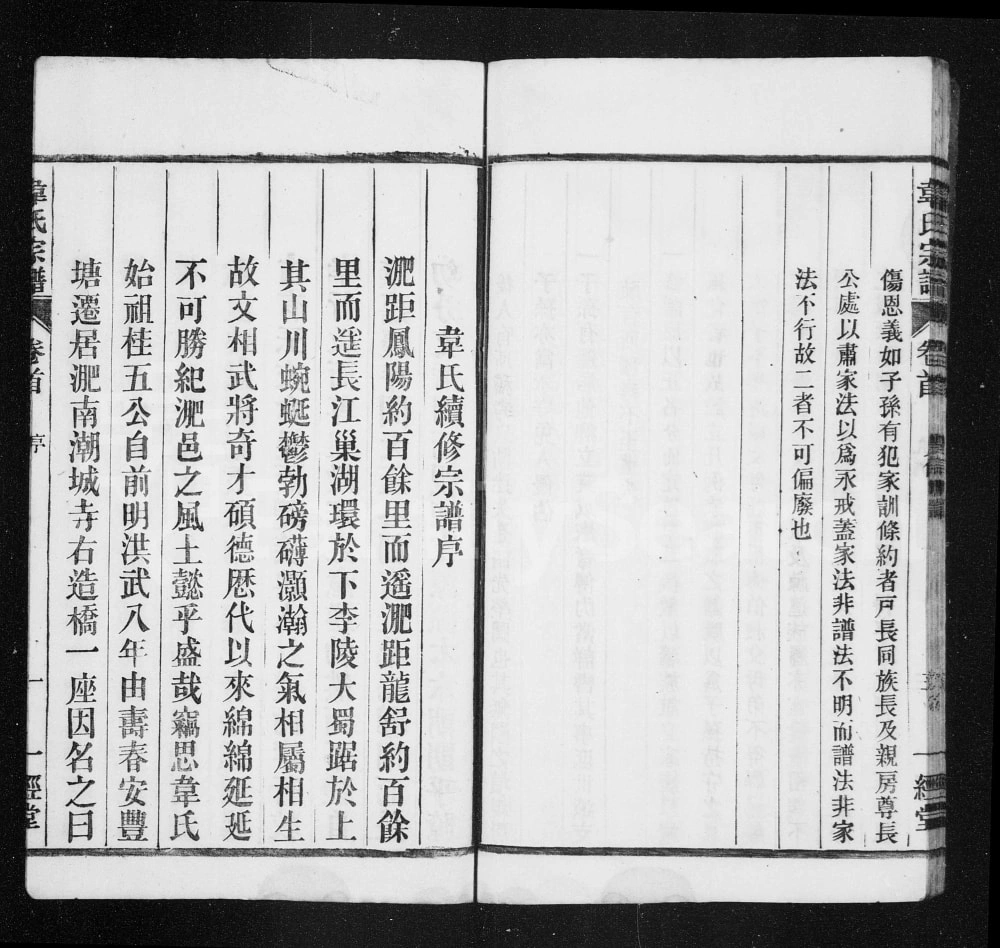 韋氏宗譜 卷首 一經堂
傷恩義如子孫有犯家訓條約者戸長同族長及親房尊長
公處以肅家法以爲永戒蓋家法非譜法不明而譜法非家
法不行故二者不可偏廢也
韋氏續修宗譜序
淝距鳳陽約百餘里而遥淝距龍舒約百餘
里而遥長江巢湖環於下李陵大蜀踞於上
其山川蜿蜒鬱勃磅礴灝瀚之氣相屬相生
故文相武將奇才碩德歷代以來綿綿延延
不可勝紀淝邑之風土懿乎盛哉竊思韋氏
始祖桂五公自前明洪武八年由壽春安豐
塘遷居淝南潮城寺右造橋一座因名之曰
韋氏宗譜 卷首 序 一 一經堂